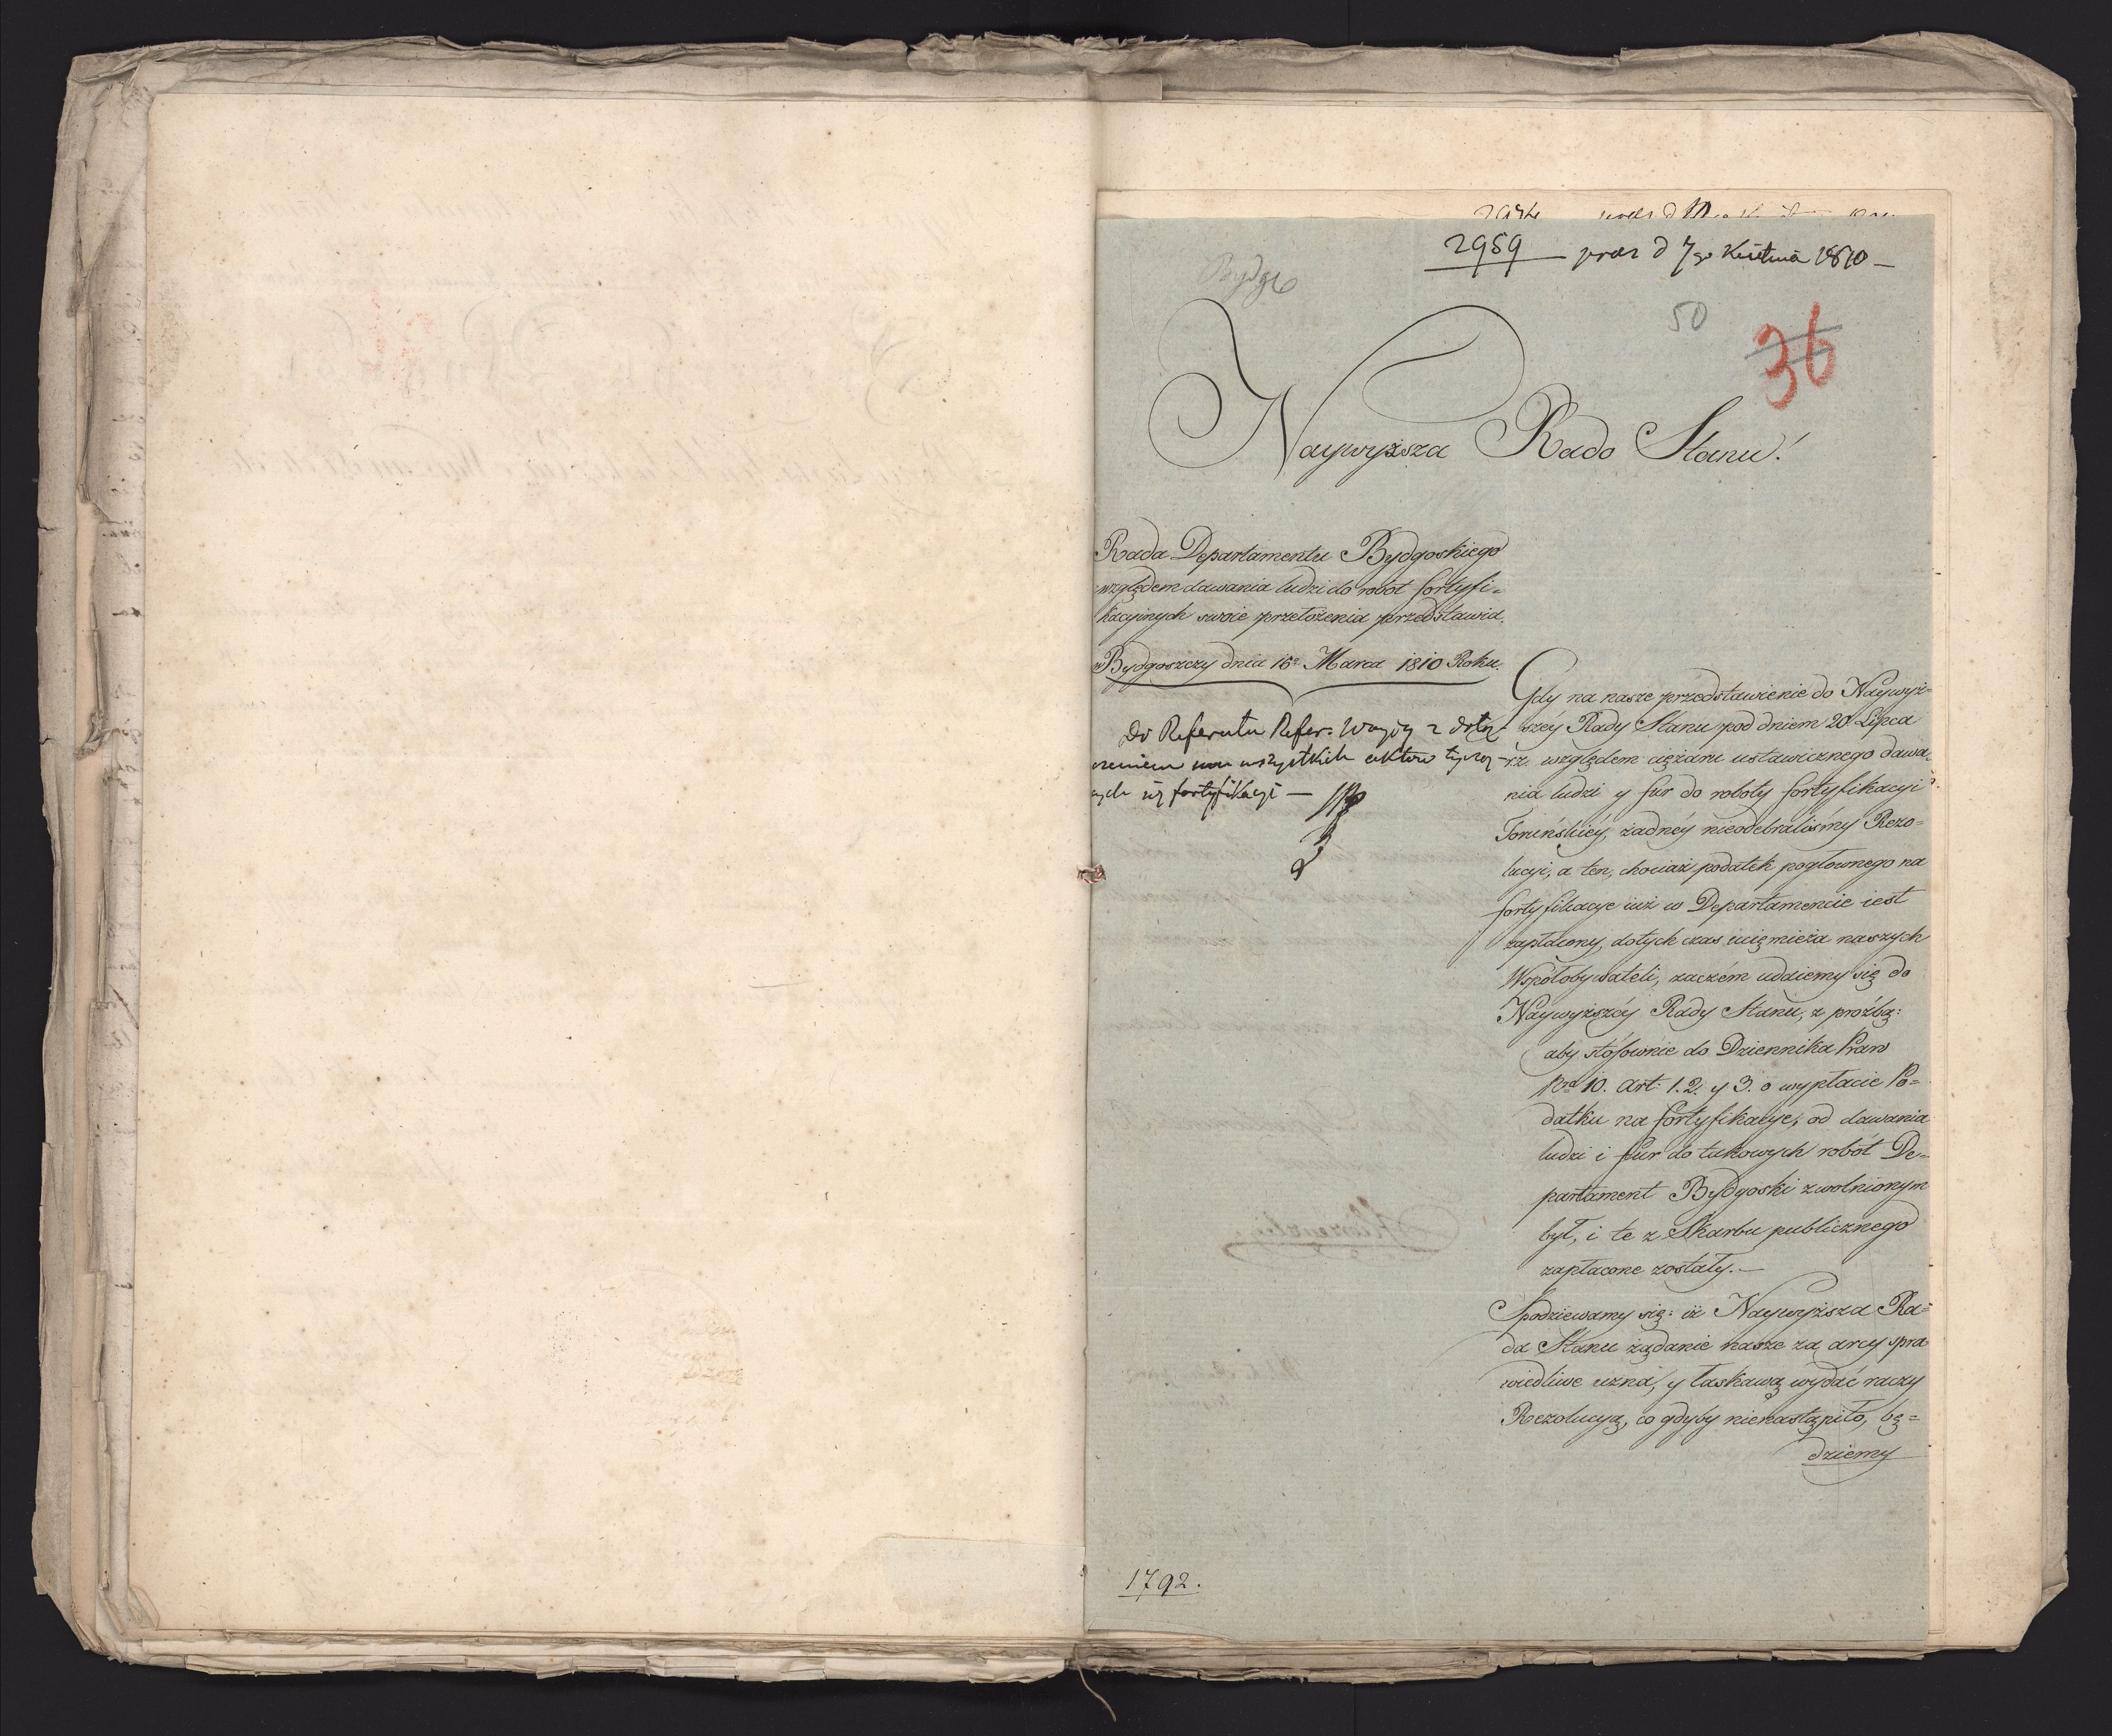 2959 prez d 7go Kwietnia 1810 —
Bydg
50
36
Naywyższa Rado Stanu!
Rada Departamentu Bydgoskiego
względem dawania ludzi do robót fortyfi=
kacyinych swoie przełożenia przedstawia.
w Bydgoszczy dnia 16º Marca 1810 Roku.
Do Referatu Refer: Woyny z dołą=
czeniem wszystkich aktów tycząc=
ych się fortyfikacyi —
Gdy na nasze przedstawienie do Naywyż=
széy Rady Stanu pod dniem 20 Lipca
r.z. względem ciężaru ustawicznego dawa=
nia ludzi y fur do roboty fortyfikacyi
Toruńskiéy, żadnéy nieodebraliśmy Rezo=
lucyi, a ten, chociaż podatek pogłownego na
fortyfikacye iuż w Departamencie iest
zapłacony, dotych czas uciemięża naszych
Współobywateli, zaczém udaiemy się do
Naywyższéy Rady Stanu, z proźbą:
aby stósownie do Dziennika Praw
Nro 10. Art: 1. 2. y 3. o wypłacie Po=
datku na fortyfikacye, od dawania
ludzi i fur do takowych robót De=
partament Bydgoski zwolnionym
był, i te z Skarbu publicznego
zapłacone zostały. —
Spodziewamy się: iż Naywyższa Ra=
da Stanu żądanie nasze za arcy spra
wiedliwe uzna, y łaskawą wydać raczy
Rezolucyą, co gdyby nienastąpiło, bę=
dziemy
1792.